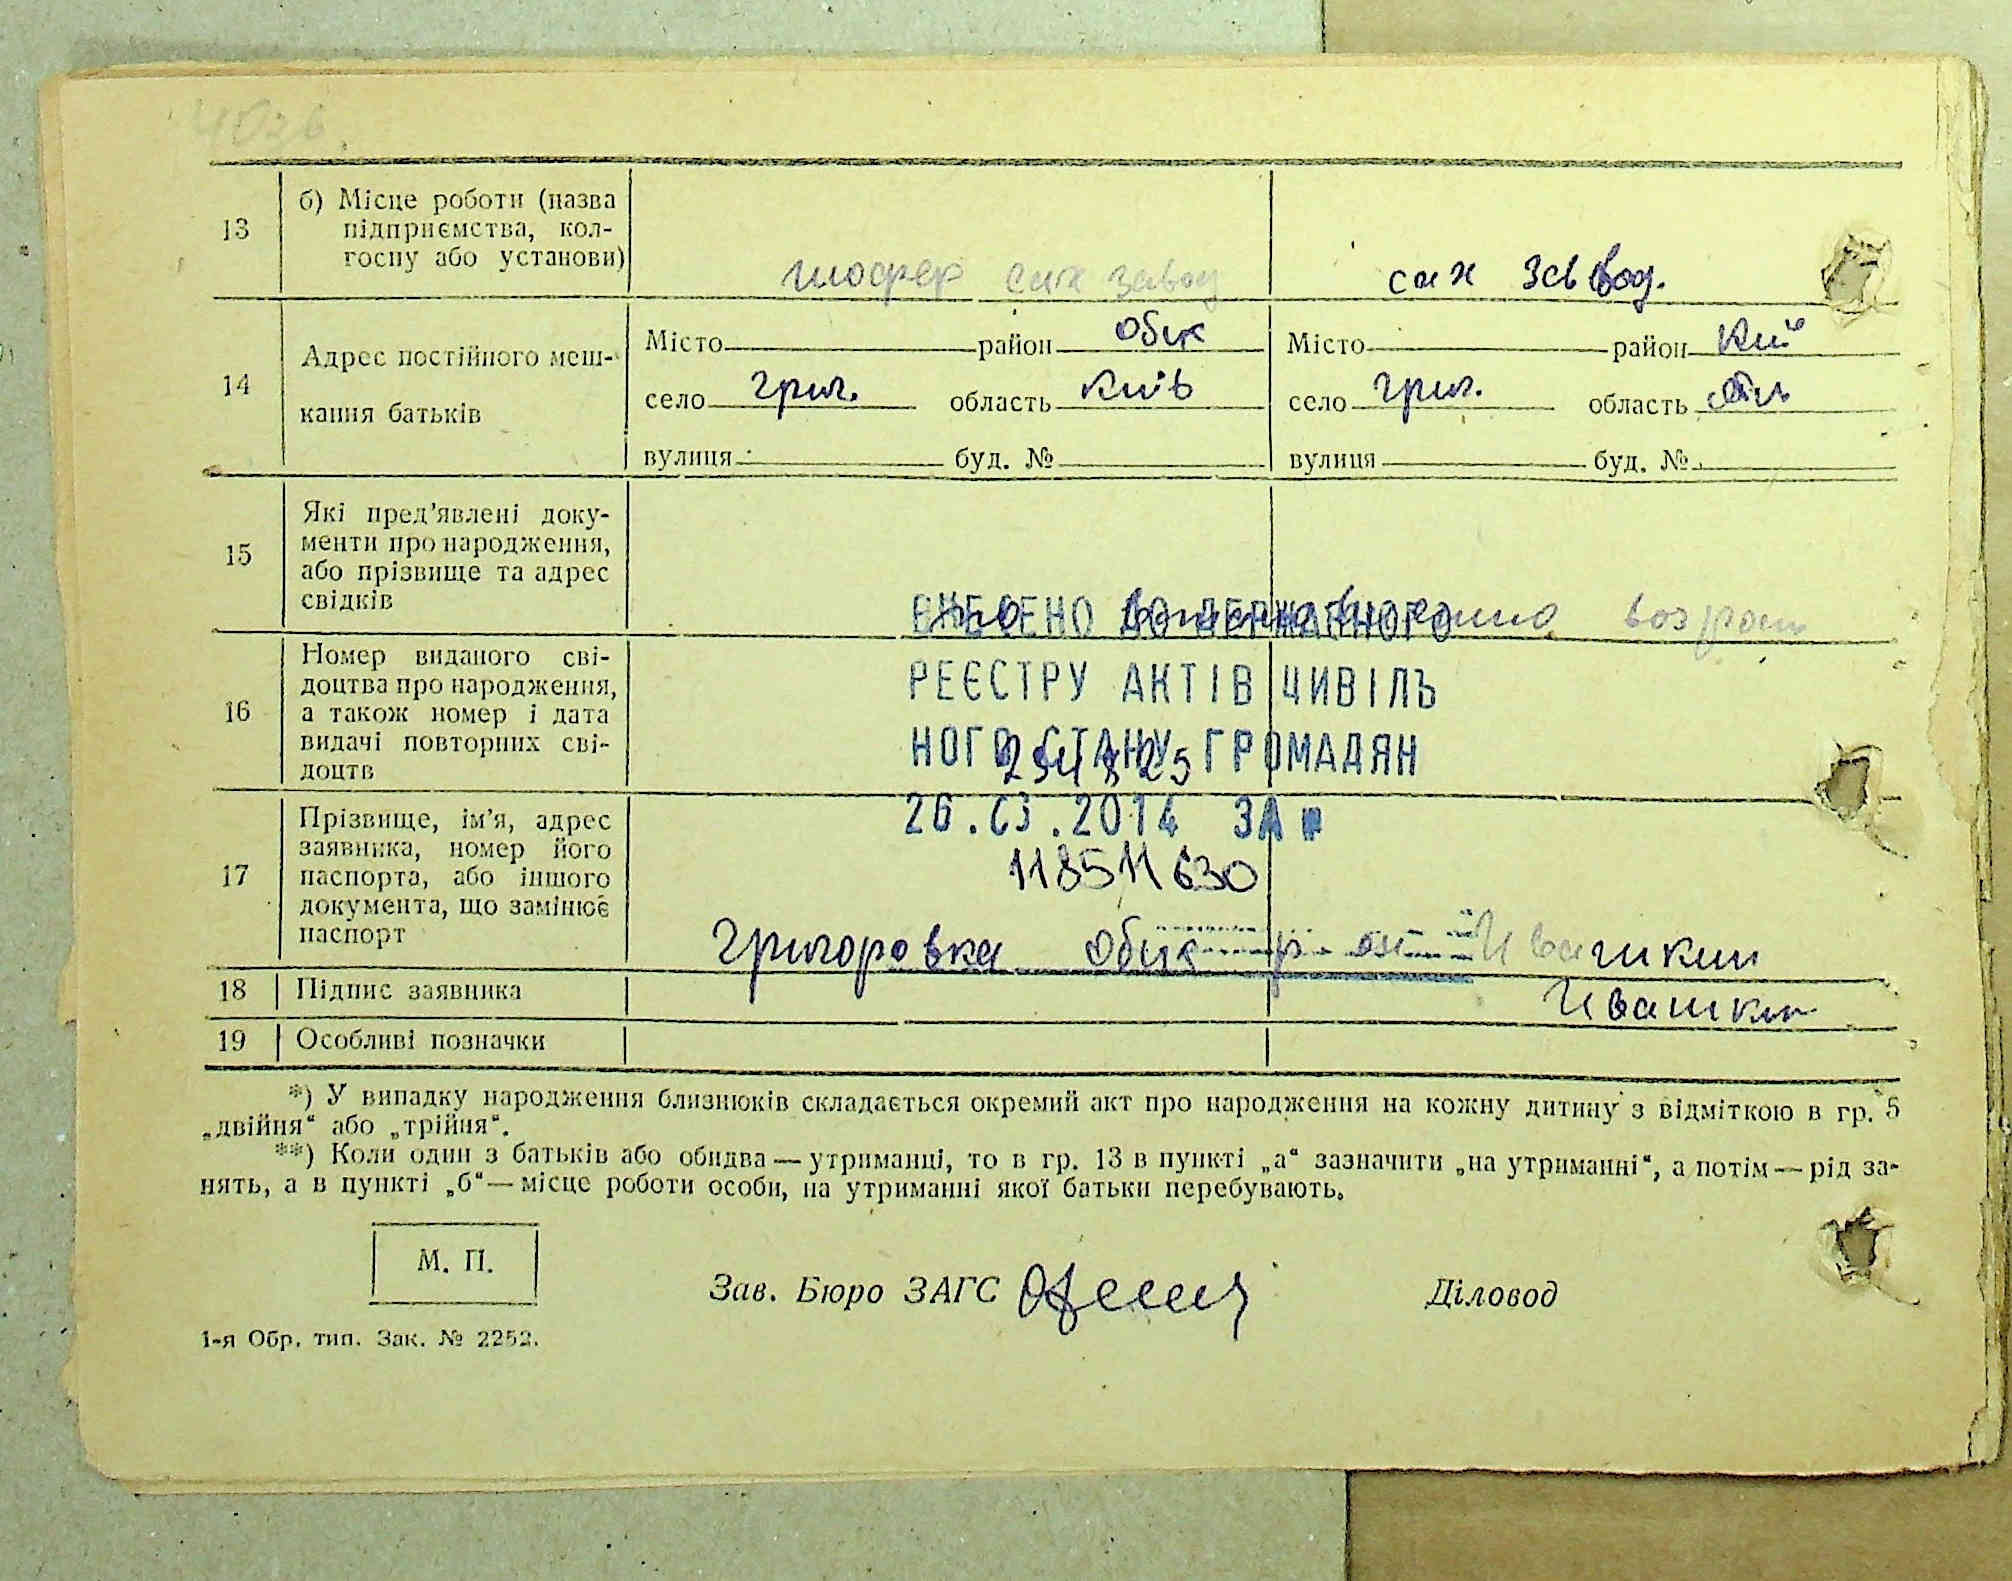 13
б) Місце роботи (назва
підприємства, кол-
госпу або установи)
шофер сах завод
сах завод.
14
Адрес постійного меш-
кання батьків
Місто район Обух
село Григ. область Київ
вулиця буд. №
Місто район Киї
село Григ. область
вулиця буд. №
15
Які пред'явлені доку-
менти про народження,
або прізвище та адрес
свідків
возраст
ВНЕСЕНО ДО ДЕРЖАВНОГО
РЕЄСТРУ АКТІВ ЦИВІЛЬ
НОГО СТАНУ ГРОМАДЯН
26.03.2014 ЗА №
11851630
16
Номер виданого сві-
доцтва про народження,
а також номер і дата
видачі повторних сві-
доцтв
17
Прізвище, ім'я, адрес
заявника, номер його
паспорта, або іншого
документа, що замінює
паспорт
Григоровка Обух р-на Ивашкин
18 Підпис заявника
Ивашкин
19 Особливі позначки
*) У випадку народження близнюків складається окремий акт про народження на кожну дитину з відміткою в гр. 5
„двійня“ або „трійня“.
**) Коли один з батьків або обидва—утриманці, то в гр. 13 в пункті „а“ зазначити „на утриманні“, а потім—рід за-
нять, а в пункті „б“—місце роботи особи, на утриманні якої батьки перебувають.
М. П.
Зав. Бюро ЗАГС
Діловод
1-я Обр. тип. Зак. № 2252.